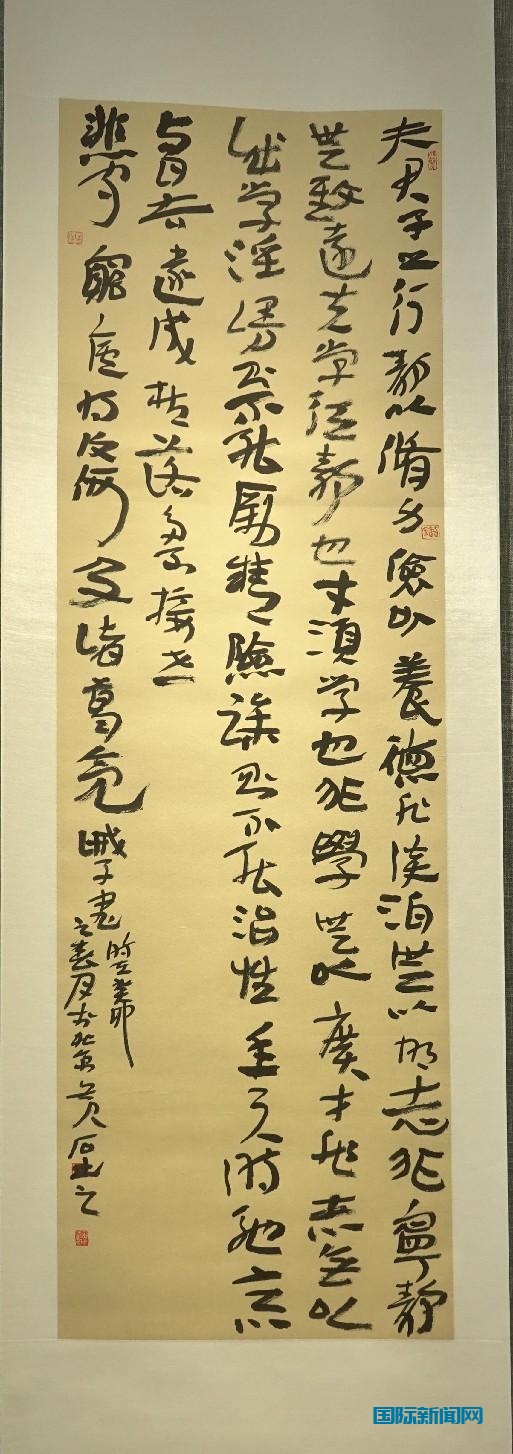 夫君子之行靜以脩身儉以養德非淡泊無以明志非寧靜
無致遠夫學須靜也才須學也非學無以廣才非志無以
成學淫慢則不能勵精險躁則不能治性年與時馳意
與日去遂成枯落多不接世
悲守窮廬將復何及諸葛亮誡子書
時在癸卯
之春月於北京
国际新闻网